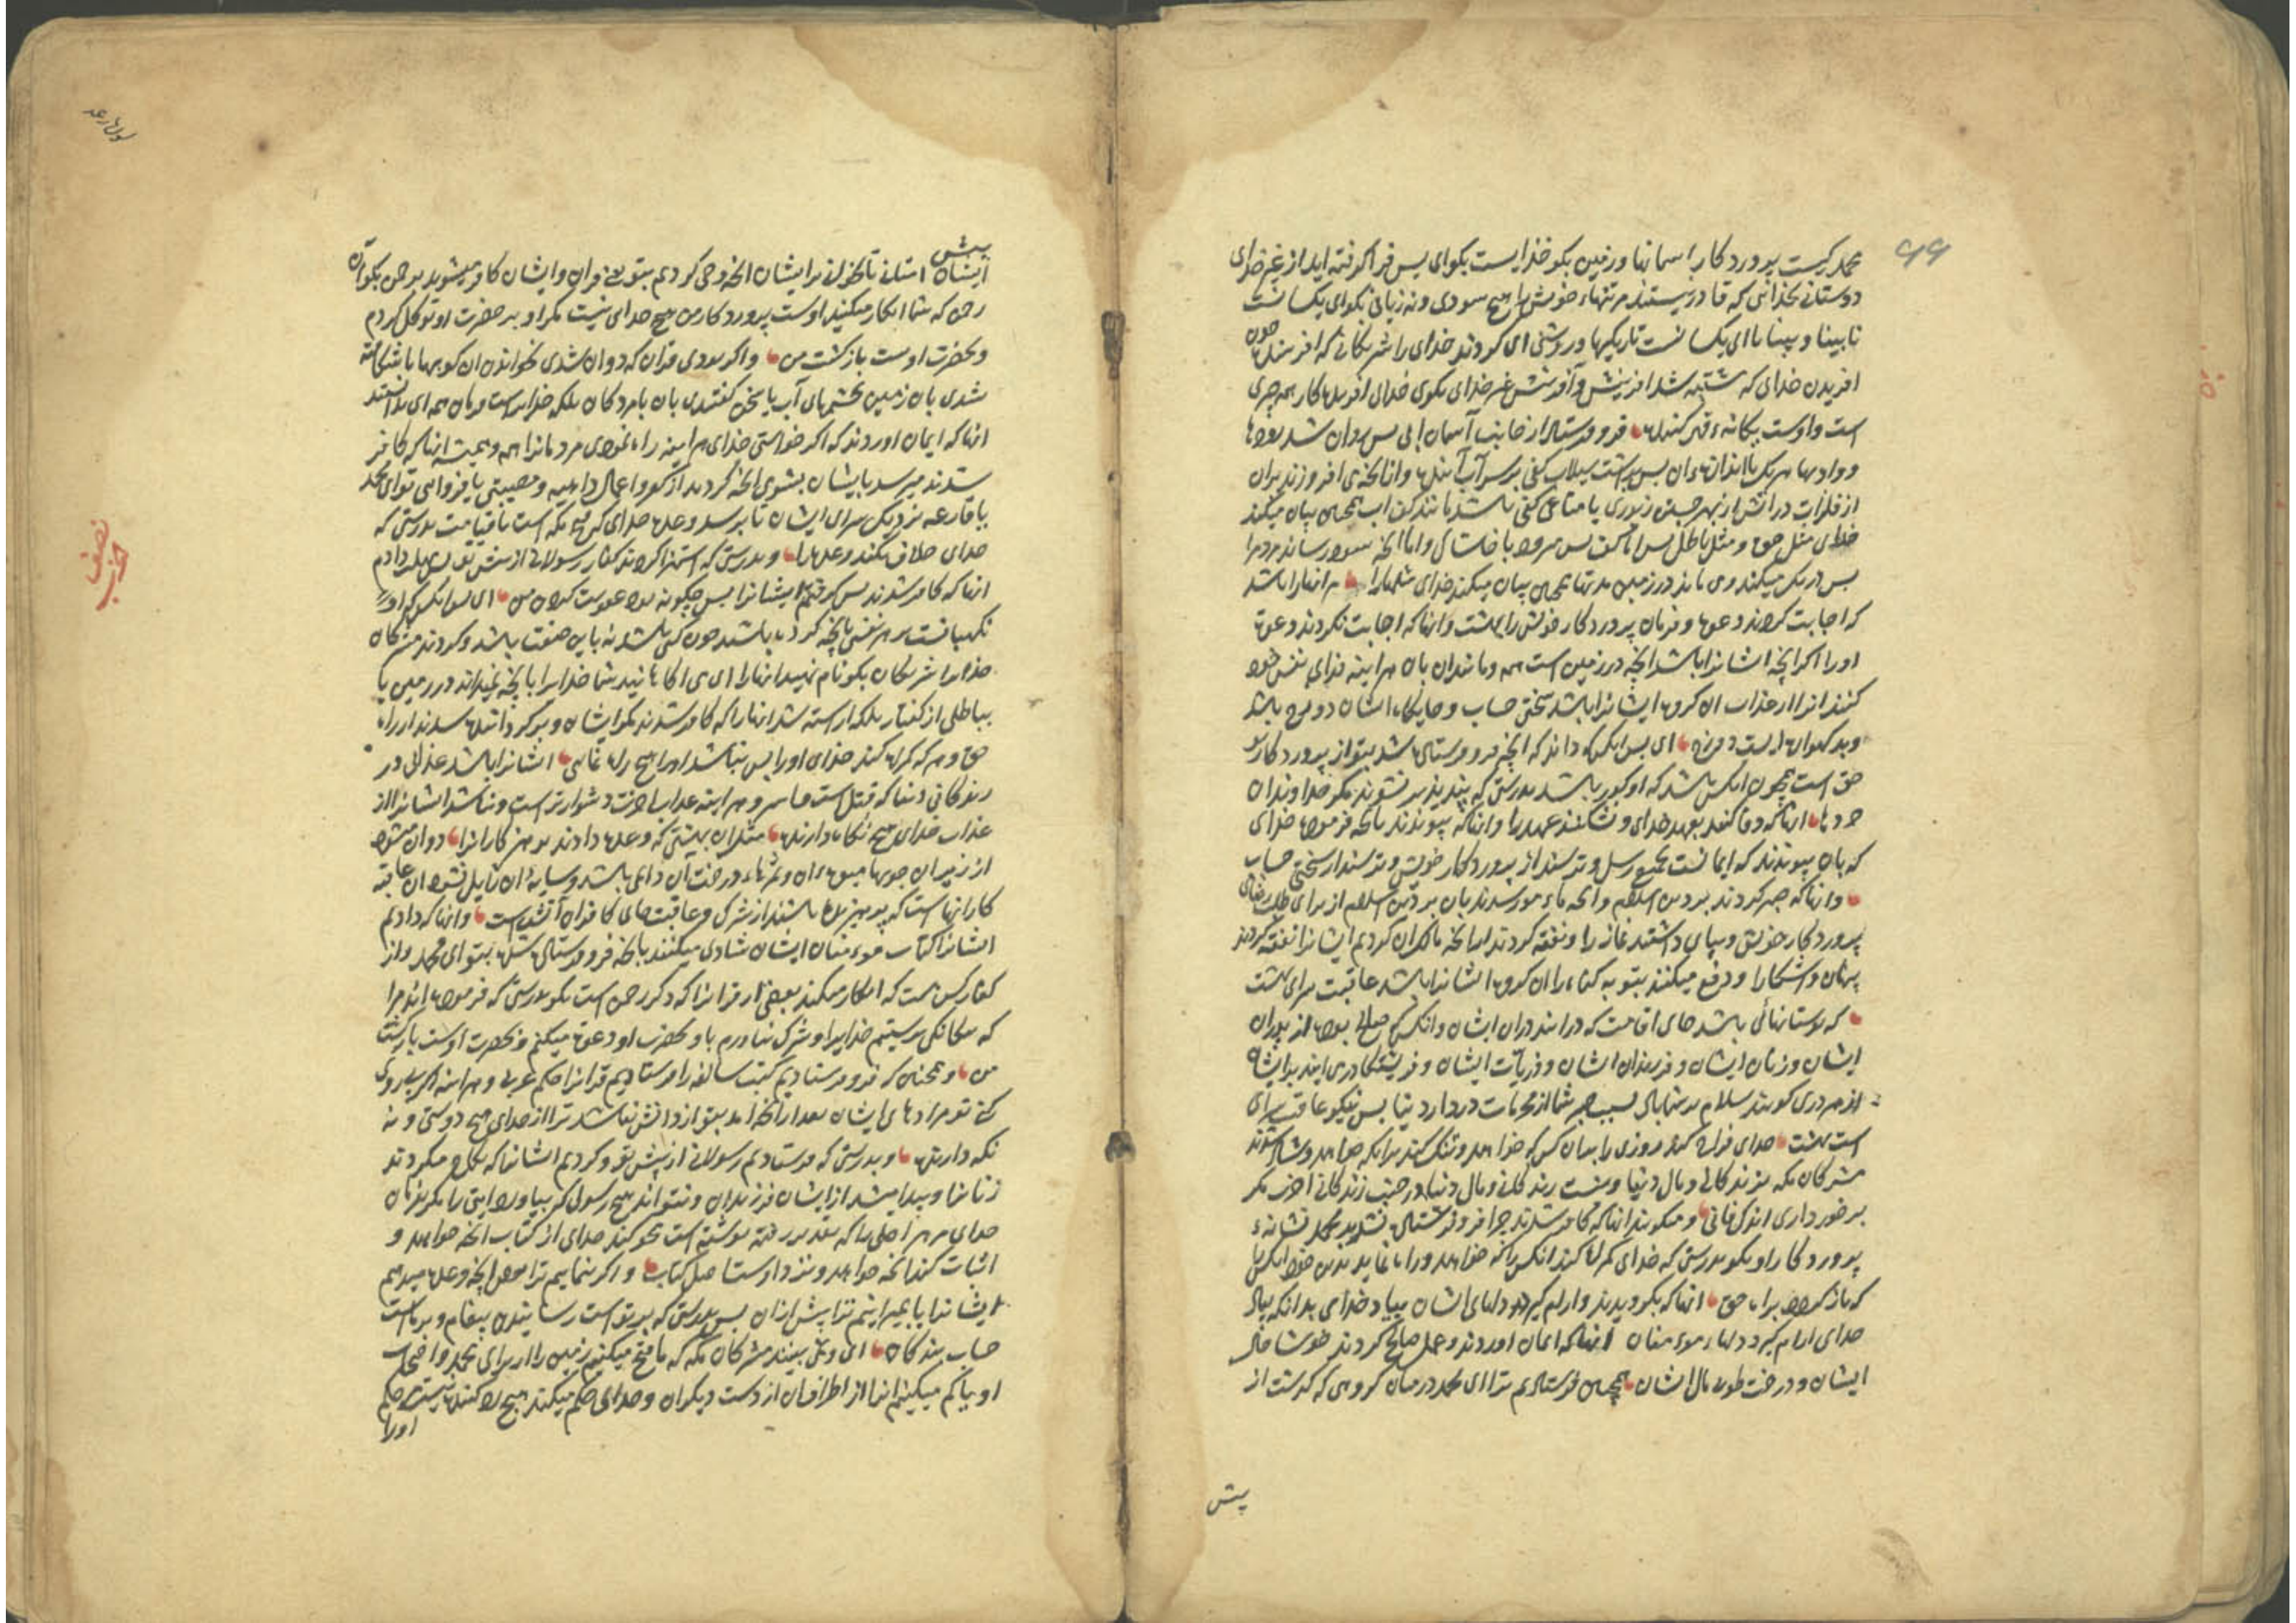 ۹۹
محمد کیست پروردکار اسمانها و زمین بکو خذایست بکوای پس فرا کرفته اید از غیر خدای
دوستانی بخذائی که قادر نیستند مر تنهاء خوش را هیچ سودی و نه زیانی بکو ای یکسانست
نابینا و بینا یا ای یکسانست تاریکیها و روشنی ای کردند خدای را شریکانی که افریده‌اند چون
افریدن خدای که مشتبه شد افرینش و آفرینش غیر خدای بکوی خدای افریدکار همه چیزی
است و اوست یکانه قهر کننده فرو فرستاد از جانب آسمان ابی پس روان شد رودها
و وادیها هر یک باندازه ان پس برداشت سیلاب کفی بر سر آب آینده و از انچه می افروزند بران
از فلزات در اتش از بهر جستن زیوری یا متاعی کفی باشد مانند کف اب همچنین بیان میکند
خدای مثل حق و مثل باطل پس اما کف پس میرود با خاشاک و اما انچه سود رساند مردم را
پس درنک میکند وی ماند در زمین مدتها همچنین بیان میکند خدای مثلها را مر انها را باشد
که اجابت کردند دعوت و فرمان پروردکار خوش را بهشت و انها که اجابت نکردند دعوت
اورا اکر انچه ایشانرا باشد انچه در زمین است همه و مانند ان بان هر اینه فدای نفس خود
کنند انرا از عذاب ان کروه ایشانرا باشد سختی حساب و جایکاه ایشان دوزخ باشد
و بد کهواره ایست دوزخ ای پس انکس که داند که انچه فرو فرستاده شد بتو از پروردکار تو
حق است همچون انکس باشد که او کور باشد بدرستی که پند پذیر نشوند مکر خداوندان
خردها انها که وفا کنند بعهد خدای و نشکنند عهد را و انها که پیوندند بانچه فرموده خدای
که بان پیوندند که ایمانست بجمیع رسل و ترسند از پروردکار خویش و ترسند از سختی حساب
و انها که صبر کردند بر دین اسلام و انچه مامور شدند بان بر دین اسلام از برای طلب رضای
پروردکار خویش و بپای داشتند نماز را و نفقه کردند از انچه ما کردیم ایشانرا نفقه کردند
پنهان و اشکارا و دفع میکنند بتوبه کناه را ان کروه ایشانرا باشد عاقبت سرای بهشت
که بوستانهائی باشد جای اقامت که درایند دران ایشان و انکس که صالح بوده از پدران
ایشان و زنان ایشان و فرزندان ایشان و ذریات ایشان و فریشتکان درمی ایند بر ایشان
از هر دری کویند سلام بر شما باد بسبب صبر شما از محرمات در دار دنیا پس نیکو عاقبت سرای
است بهشت خدای فراخ کند روزی را بهر ان کس که خواهد و تنک کند بر انکه خواهد و شاد شدند
مشرکان مکه بزندکانی و مال دنیا و نیست زندکانی و مال دنیا در جنب زندکانی اخرت مکر
برخورداری اندک فانی و میکویند انها که کافر شدند چرا فرو فرستاده نشد بر محمد نشانه‌ء
پروردکار او بکو بدرستی که خدای کمراه کند انکس را که خواهد و راه نماید بدین خود انکس را
که بازکردد براه حق انها که بکرویدند و ارام کیرد دلهای ایشان بیاد خدای بدانکه بیاد
خدای ارام کیرد دلهاء مومنان انها که ایمان اوردند و عمل صالح کردند خوشا حال
ایشان و درخت طوبی مال ایشان همچنین فرستادیم ترا ای محمد در میان کروهی که کذشت از
پیش
سورة رعد
پیش
ایشان امتان تا بخوانی بر ایشان انچه وحی کردیم بتو یعنی قران و ایشان کافر میشوند برحمن بکو ان
رحمن که شما انکار میکنید اوست پروردکار من هیچ خدای نیست مکر او بر حضرت او توکل کردم
و بحضرت اوست بازکشت من و اکر بودی قران که روان شدی بخواندن ان کوهها یا شکافته
شدی بان زمین بچشمهای آب یا سخن کفتندی بان با مردکان بلکه خدایراست فرمان همه ای ندانستند
انها که ایمان اوردند که اکر خواستی خدای هر اینه راه نمودی مردمانرا همه و همیشه انها که کافر
شدند میرسد بایشان بشومی انچه کردند از کفر و اعمال داهیه و مصیبتی یا فرود ائی تو ای محمد
یا قارعه نزدیک سرای ایشان تا برسد وعده خدای که فتح مکه است یا قیامت بدرستی که
خدای خلاف نکند وعده را و بدرستی که استهزا کردند کفار رسولانی از پیش تو پس مهلت دادم
انها که کافر شدند پس کرفتم ایشانرا پس چکونه بود عقوبت کردن من ای پس انکس که او
نکهبانست بر هر نفسی بانچه کرده باشد چون کسی باشد نه باین صفت باشد و کردند مشرکان
خدایرا شریکان بکو نام نهید انها را ای می اکاهانید شما خدایرا بانچه نمیداند در زمین یا
بباطلی از کفتار بلکه اراسته شد انها را که کافر شدند مکر ایشان و برکردانیده شدند از راه
حق و هر که کمراه کند خدای اورا پس نباشد اورا هیچ راه نمائی ایشانرا باشد عذابی در
زندکانی دنیا که قتل است و اسر و هر اینه عذاب اخرت دشوارتر است و نباشد ایشانرا از
عذاب خدای هیچ نکاه دارنده مثل ان بهشتی که وعده دادند پرهیزکارانرا روان میشود
از زیر ان جویها میوه‌ان و ثمرهاء درخت آن دایمی باشد و سایه ان زایل نشود ان عاقبت
کار انها است که پرهیزیده باشند از شرک و عاقبت جای کافران آتش است و انها که دادیم
ایشانرا کتاب مومنان ایشان شادی میکنند بانچه فرو فرستاده شده بتو ای محمد و از
کفار کس است که انکار میکند بعضی از قرانرا که ذکر رحمن است بکو بدرستی که فرموده‌اند مرا
که بیکانکی پرستیم خدایرا و شرک نیاورم باو بحضرت او دعوت میکنم و بحضرت اوست بازکشت
من و همچنین که فرو فرستادیم کتب سالفه را فرستادیم قرانرا حکم عربی و هر اینه اکر پیروی
کنی تو مرادهای ایشان بعد از انچه امد بتو از دانش نباشد ترا از خدای هیچ دوستی و نه
نکه دارنده و بدرستی که فرستادیم رسولانی از پیش تو و کردیم ایشانها که نکاح میکردند
زنانرا و پیدا میشد از ایشان فرزندان و نتواند هیچ رسول که بیاورد ایتی را مکر بفرمان
خدای مر هر اجلی را که تقدیر رفته نوشته است محو کند خدای از کتاب انچه خواهد و
اثبات کند انچه خواهد و نزد اوست اصل کتاب و اکر بنماییم ترا بعضی انچه وعده میدهیم
ایشانرا یا بمیرانیم ترا پیش از ان پس بدرستی که بر تو است رسانیدن پیغام و بر ماست
حساب بندکان ای و نمی بینند مشرکان مکه که ما فتح میکنیم زمین را از برای محمد و اصحاب
او یا کم میکنیم انرا از اطراف ان از دست دیکران و خدای حکم میکند هیچ رد کننده نیست حکم
اورا
نصف
حزب